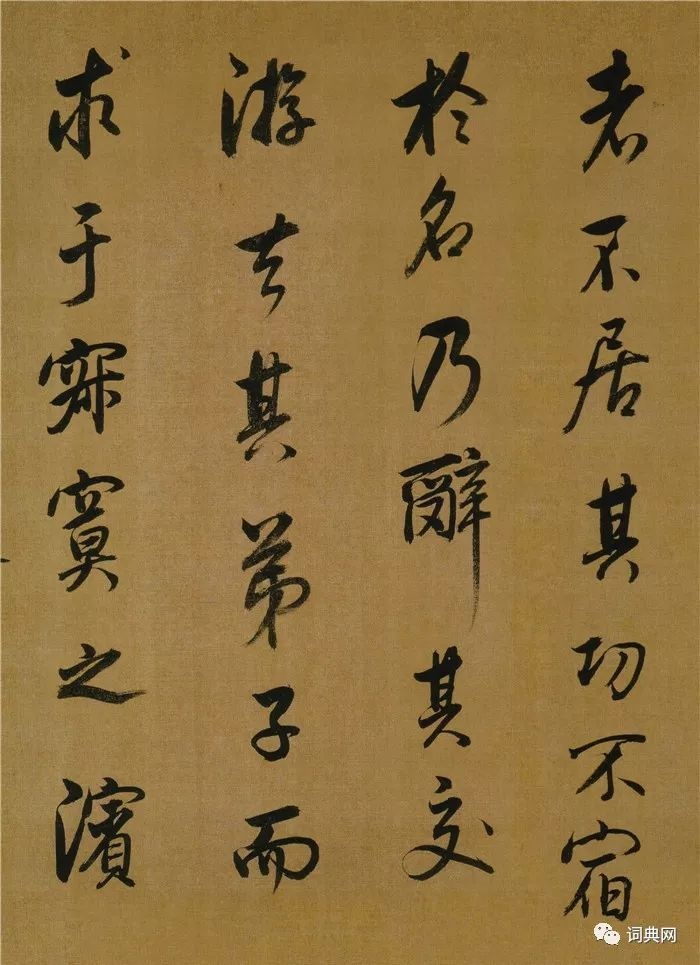 老不居其功不宿
於名乃辭其交
游去其弟子而
求于寂寞之濱
词典网